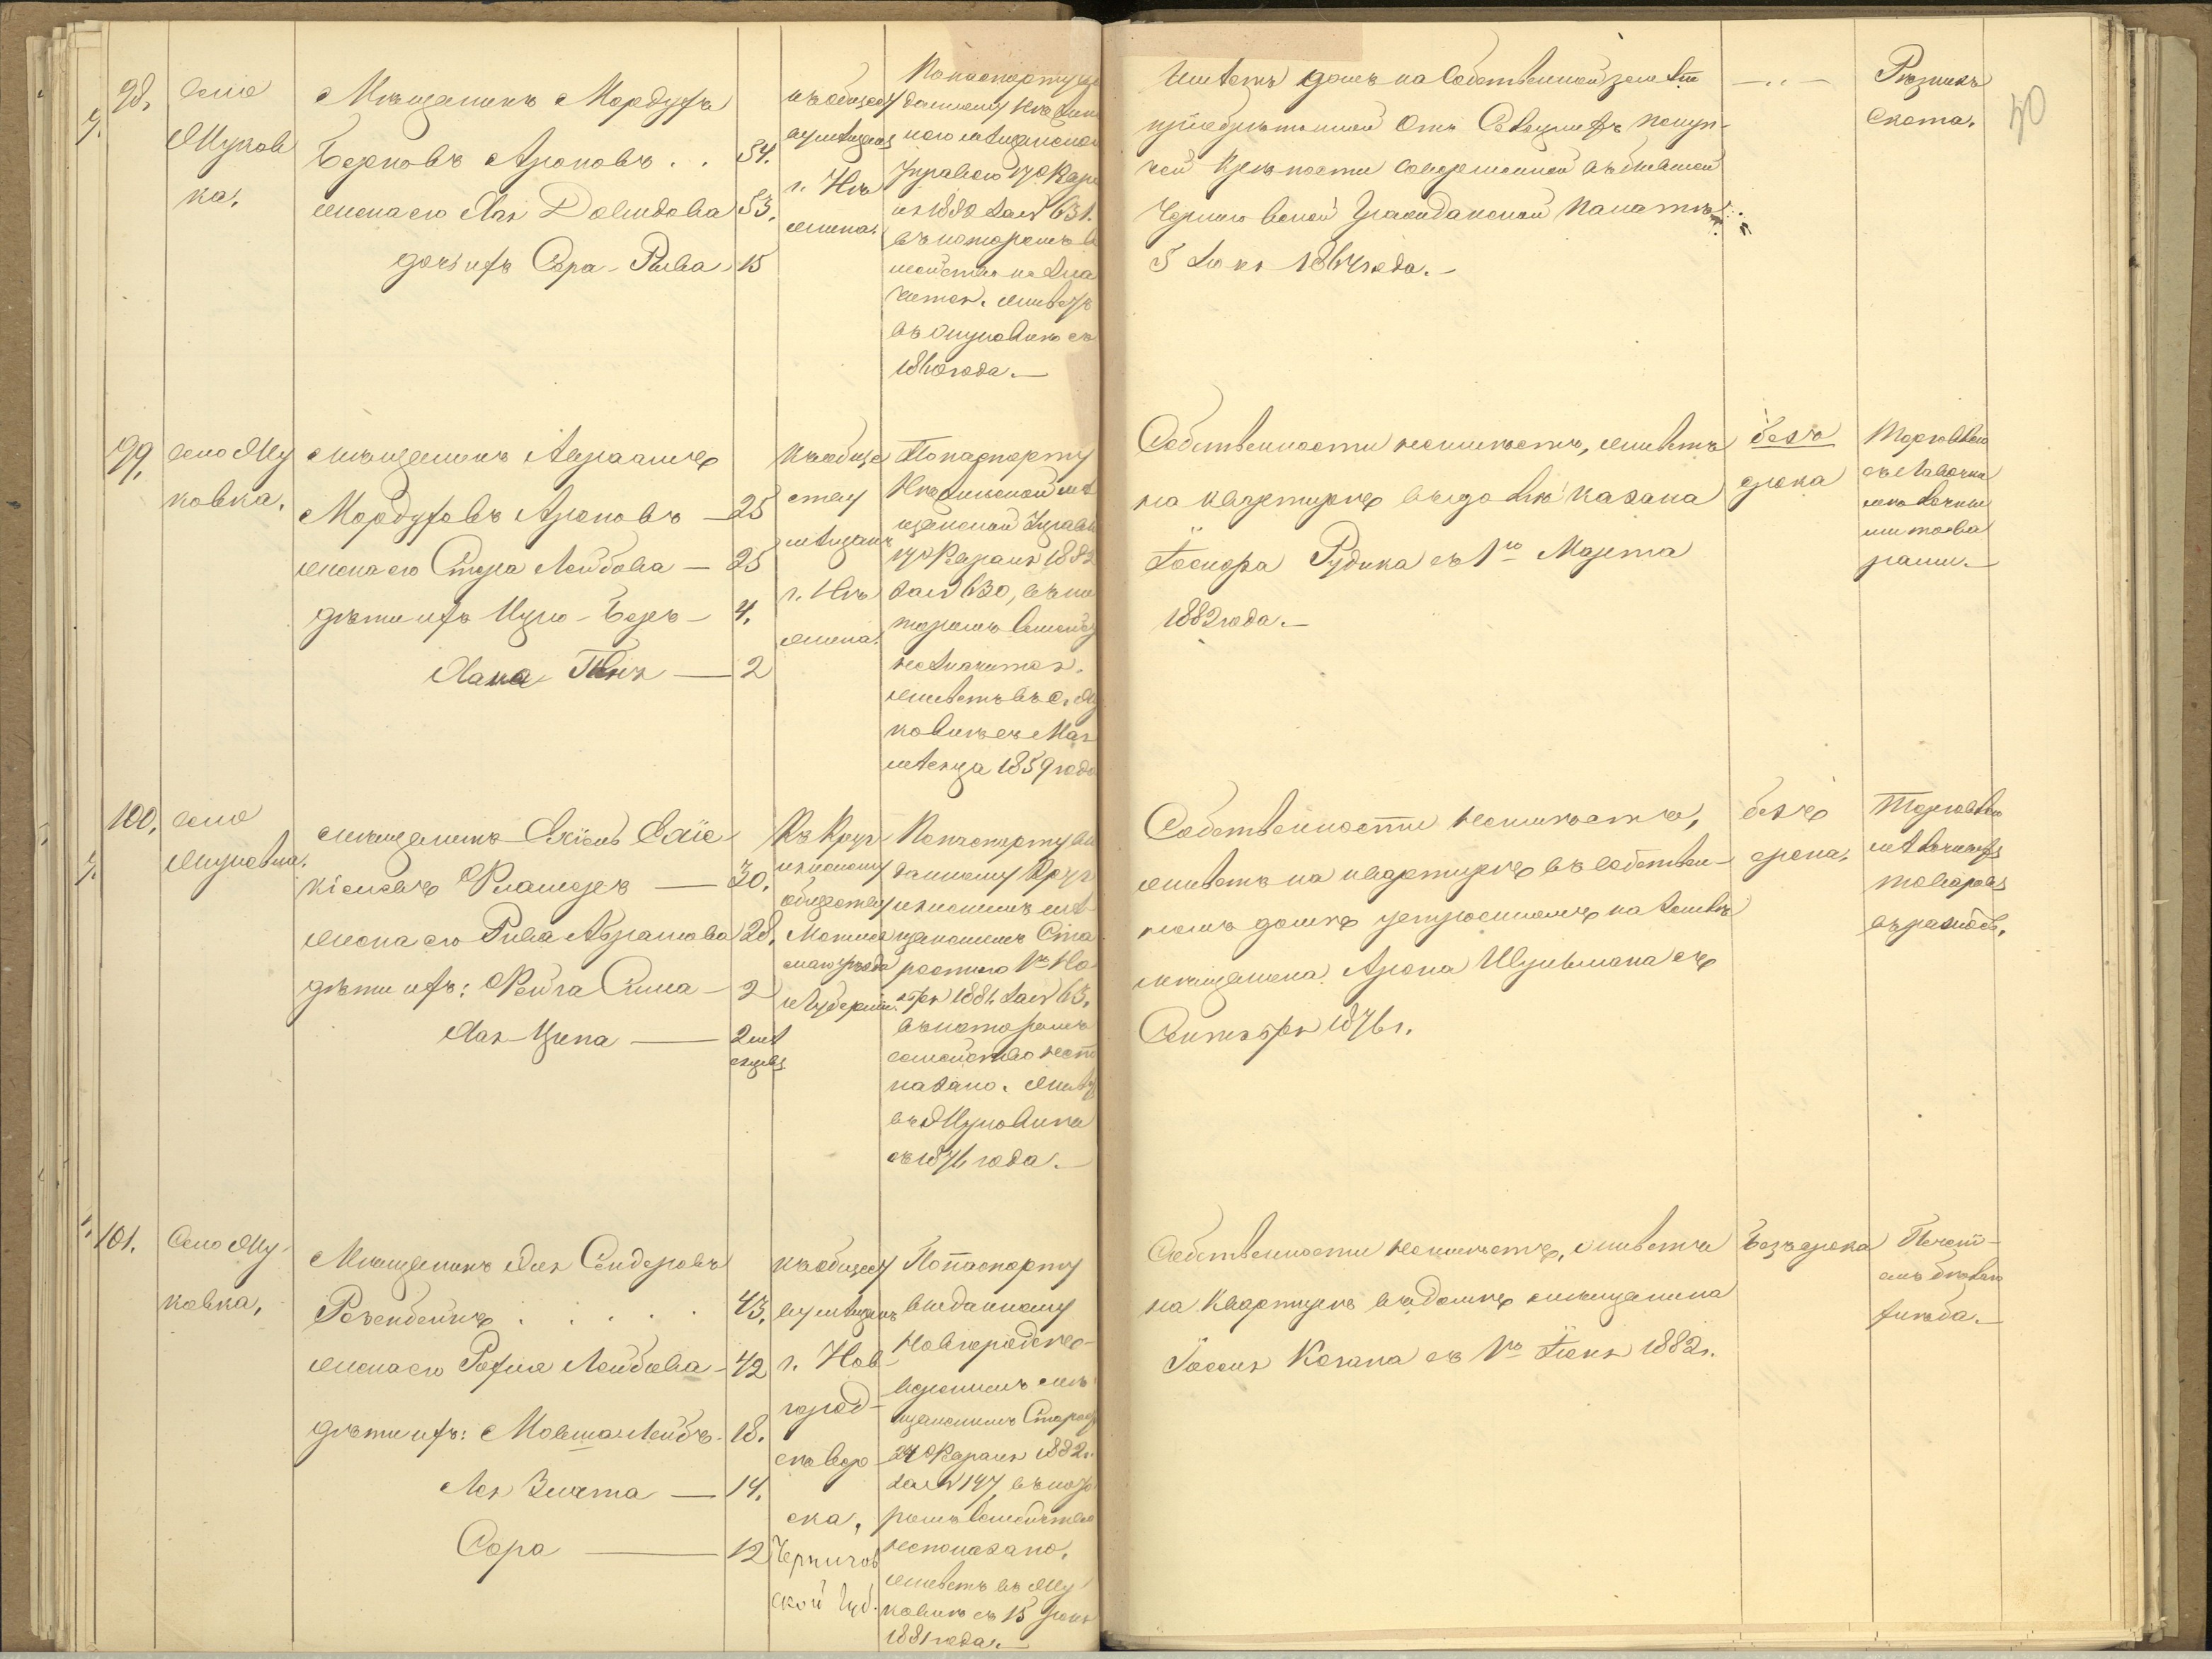 98.
село
Жуков
ка.
Мѣщанинъ Мордухъ
Берковъ Ароновъ . . 54.
жена его Хая Довидова 53.
дочь ихъ Сора-Рыва 15
къ общес
г. Нѣ
жина.
По паспорту
данному Нѣжин
Управою 170 Февра
ля 1882 за № 631.
въ которомъ
чится. живетъ
въ Жуковкѣ съ
1860 года.
Имѣетъ домъ на собственной земли
пріобрѣтенной отъ
чей крѣпости совершенной въ бывшей
Черниговской Гражданской Палатѣ
5 Іюня 1864 года.
Рѣзникъ
скота.
40
99.
село Жу
ковка.
мѣщанинъ Авраамъ
Мордуховъ Ароновъ — 25
жена его Стера Лейбова — 25
дѣти ихъ Ицко-Беръ — 4.
Хана — 2
къ обще
ству
мѣщанъ
г. Нѣ
жина.
По паспорту
Нѣжинской мѣ
щанской Управы
17 Февраля 1882
за № 630, въ ко
торомъ семейс
не значится.
живетъ въ с. Жу
ковкѣ съ Мая
мѣсяца 1859 года
Собственности неимѣетъ, живетъ
на квартирѣ въ домѣ казака
Іосифа Рудика съ 1го Марта
1882 года.
безъ
срока
Торговля
съ лавочки
мѣлочны
ми това
рами.
100.
село
Жуковка.
мѣщанинъ Ехіель Ехіе
кіелевъ Фламеръ — 30.
жена его Рива Абрамова 28.
дѣти ихъ: Фейга Сима — 2
Хая-Ципа — 2 мѣ
сяцевъ
Къ Круг
лянскому
обществу
Могиле
Губерніи.
По паспорту вы
данному Круг
лянскимъ мѣ
щанскимъ Ста
ростою 1го Но
ября 1881. за № 63.
въ которомъ
семейство непо
казано. Живетъ
въ Жуковкѣ
съ 1876 года.
Собственности неимѣетъ,
живетъ на квартирѣ въ собствен
номъ домѣ устроенномъ на землѣ
мѣщанина Арона Шульмана съ
Сентября 1876 г.
безъ
срока.
Торговля
мѣлочныхъ
товаровъ
въ разносъ.
101.
Село Жу
ковка.
Мѣщанинъ Сендеровъ
Розенбейнъ . . . . . 43.
жена его Рохля Лейбова — 42
дѣти ихъ: Мовша-Лейбъ — 18.
Лея Злата — 14.
Сора — 12
къ общес
ву мѣщанъ
г. Нов
город-
сѣвер
ска,
Чернигов
ской Губ.
По паспорту
выданному
Новгородсѣ-
верскимъ мѣ
щанскимъ Старос
24 Февраля 1882 г.
за № 147, въ кото
ромъ семейство
непоказано.
живетъ въ Жу
ковкѣ съ 15 Іюня
1881 года.
Собственности неимѣетъ, живетъ
на квартирѣ въ домѣ мѣщанина
Іосея Когана съ 1го Іюня 1882 г.
Безъ срока
Печені-
емъ бѣлаго
хлѣба.